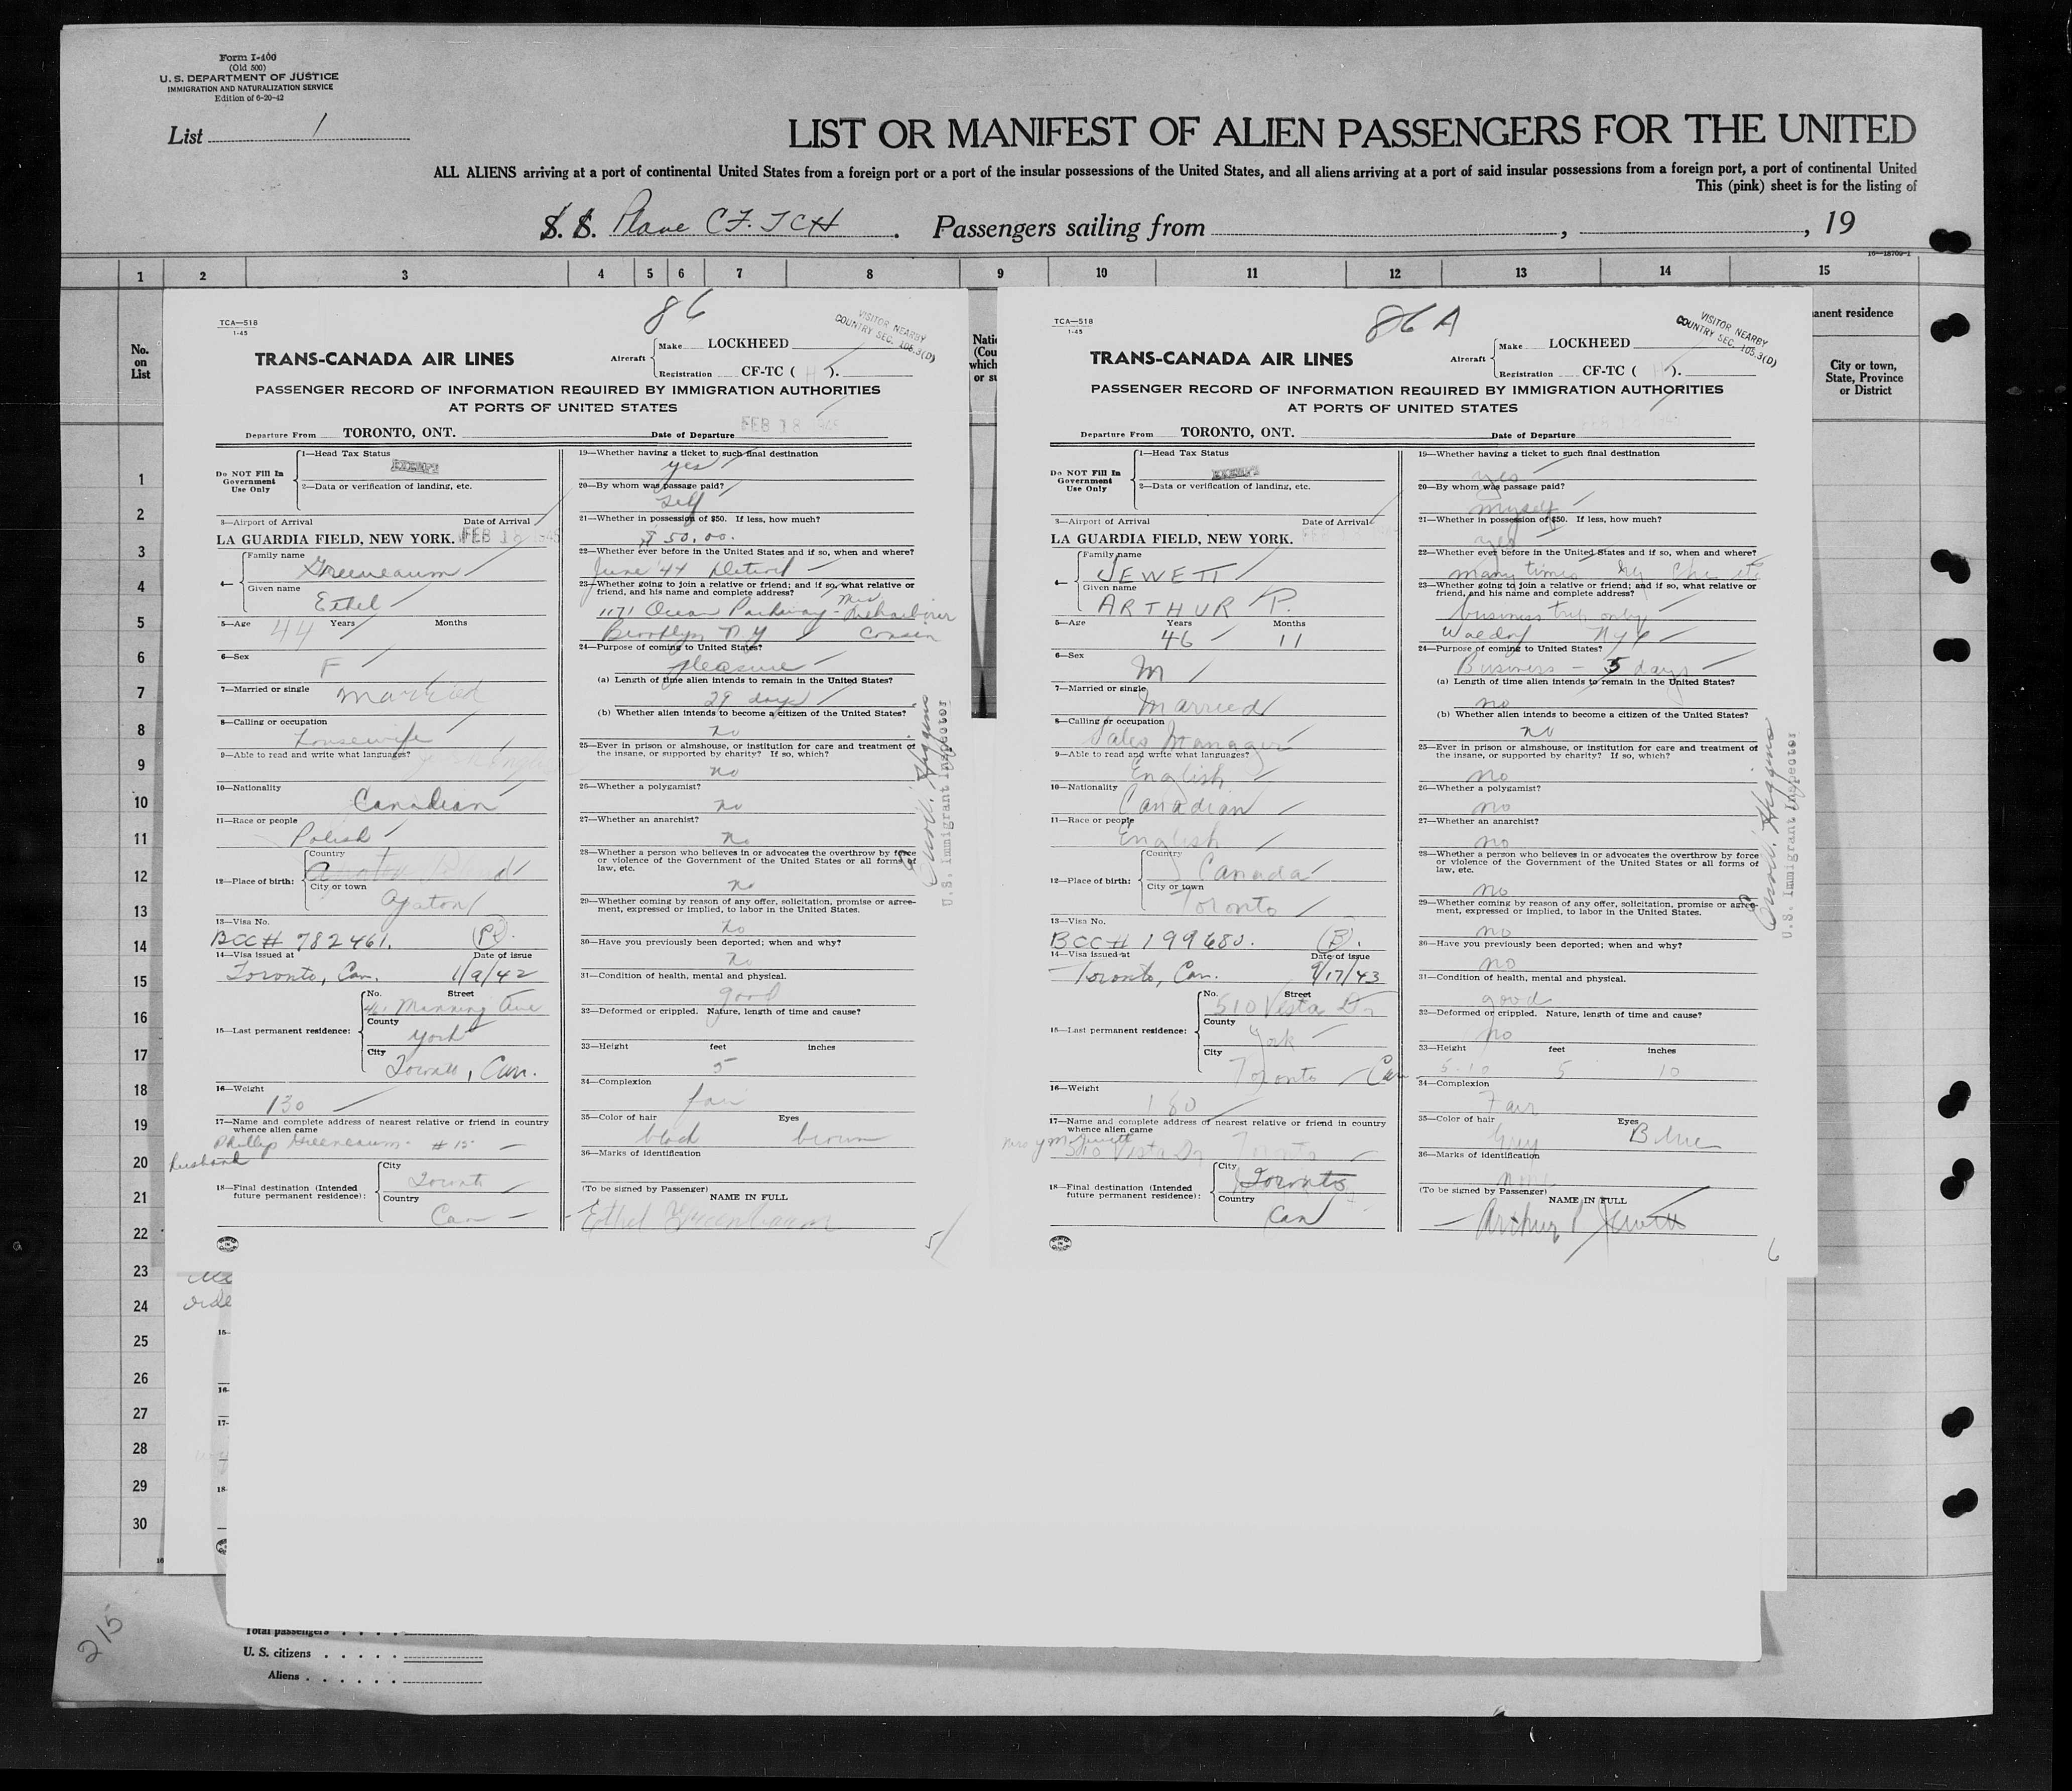 Form I-400
(Old 500)
U. S. DEPARTMENT OF JUSTICE
IMMIGRATION AND NATURALIZATION SERVICE
Edition of 6-20-42
List 1
LIST OR MANIFEST OF ALIEN PASSENGERS FOR THE UNITED
ALL ALIENS arriving at a port of continental United States from a foreign port or a port of the insular possessions of the United States, and all aliens arriving at a port of said insular possessions from a foreign port, a port of continental United
This (pink) sheet is for the listing of
S. S. Plane CF. TCH. Passengers sailing from , , 19
16—18709-1
1 2 3 4 5 6 7 8 9 10 11 12 13 14 15
No.
on
List
Natio
(Cou
which
or su
anent residence
City or town,
State, Province
or District
86
TCA—518
1-45
VISITOR NEARBY
COUNTRY SEC. 105.3(D)
TRANS-CANADA AIR LINES
Aircraft
Make LOCKHEED
Registration CF-TC ( H ).
PASSENGER RECORD OF INFORMATION REQUIRED BY IMMIGRATION AUTHORITIES
AT PORTS OF UNITED STATES
Departure From TORONTO, ONT. Date of Departure FEB 18 1945
Do NOT Fill In
Government
Use Only
1—Head Tax Status
EXEMPT
2—Data or verification of landing, etc.
3—Airport of Arrival Date of Arrival
LA GUARDIA FIELD, NEW YORK. FEB 18 1945
4—
Family name
Greeneaum
Given name
Ethel
5—Age 44 Years Months
6—Sex
F
7—Married or single married
8—Calling or occupation
housewife
9—Able to read and write what languages?
10—Nationality
Canadian
11—Race or people
Polish
12—Place of birth:
Country
City or town
13—Visa No.
BCC# 782461.
14—Visa issued at Date of issue
Toronto, Can. 1/9/42
15—Last permanent residence:
No. Street
Manning Ave
County
York
City
Toronto, Can.
16—Weight
130
17—Name and complete address of nearest relative or friend in country
whence alien came
Phillip Greeneaum # 15
husband
18—Final destination (Intended
future permanent residence):
City
Toronto
Country
Can
19—Whether having a ticket to such final destination
yes
20—By whom was passage paid?
Self
21—Whether in possession of $50. If less, how much?
$ 50.00.
22—Whether ever before in the United States and if so, when and where?
June 44 Detroit
23—Whether going to join a relative or friend; and if so, what relative or
friend, and his name and complete address?
Mrs.
1171 Ocean Parkway -
Brooklyn N.Y Cousin
24—Purpose of coming to United States?
pleasure
(a) Length of time alien intends to remain in the United States?
29 days
(b) Whether alien intends to become a citizen of the United States?
no
25—Ever in prison or almshouse, or institution for care and treatment of
the insane, or supported by charity? If so, which?
no
26—Whether a polygamist?
no
27—Whether an anarchist?
no
28—Whether a person who believes in or advocates the overthrow by force
or violence of the Government of the United States or all forms of
law, etc.
no
29—Whether coming by reason of any offer, solicitation, promise or agree-
ment, expressed or implied, to labor in the United States.
no
30—Have you previously been deported; when and why?
no
31—Condition of health, mental and physical.
good
32—Deformed or crippled. Nature, length of time and cause?
33—Height feet inches
5
34—Complexion
fair
35—Color of hair Eyes
black brown
36—Marks of identification
(To be signed by Passenger) NAME IN FULL
Ethel Greenbaum
5
U.S. Immigrant Inspector
86A
TCA—518
1-45
VISITOR NEARBY
COUNTRY SEC. 105.3(D)
TRANS-CANADA AIR LINES
Aircraft
Make LOCKHEED
Registration CF-TC ( H ).
PASSENGER RECORD OF INFORMATION REQUIRED BY IMMIGRATION AUTHORITIES
AT PORTS OF UNITED STATES
Departure From TORONTO, ONT. Date of Departure
Do NOT Fill In
Government
Use Only
1—Head Tax Status
EXEMPT
2—Data or verification of landing, etc.
3—Airport of Arrival Date of Arrival
LA GUARDIA FIELD, NEW YORK.
4—
Family name
JEWETT
Given name
ARTHUR P.
5—Age Years Months
46 11
6—Sex
M
7—Married or single
Married
8—Calling or occupation
Sales Manager
9—Able to read and write what languages?
English
10—Nationality
Canadian
11—Race or people
English
12—Place of birth:
Country
Canada
City or town
Toronto
13—Visa No.
BCC# 199680. (B).
14—Visa issued at Date of issue
Toronto, Can. 9/17/43
15—Last permanent residence:
No. Street
510 Vesta Dr
County
York
City
Toronto Can
16—Weight
180
17—Name and complete address of nearest relative or friend in country
whence alien came
510 Vesta Dr Toronto
18—Final destination (Intended
future permanent residence):
City
Toronto
Country
Can
19—Whether having a ticket to such final destination
yes
20—By whom was passage paid?
myself
21—Whether in possession of $50. If less, how much?
yes
22—Whether ever before in the United States and if so, when and where?
many times
23—Whether going to join a relative or friend; and if so, what relative or
friend, and his name and complete address?
business trip only
Waldorf NYC
24—Purpose of coming to United States?
Business — 5 days
(a) Length of time alien intends to remain in the United States?
no
(b) Whether alien intends to become a citizen of the United States?
no
25—Ever in prison or almshouse, or institution for care and treatment of
the insane, or supported by charity? If so, which?
no
26—Whether a polygamist?
no
27—Whether an anarchist?
no
28—Whether a person who believes in or advocates the overthrow by force
or violence of the Government of the United States or all forms of
law, etc.
no
29—Whether coming by reason of any offer, solicitation, promise or agree-
ment, expressed or implied, to labor in the United States.
no
30—Have you previously been deported; when and why?
no
31—Condition of health, mental and physical.
good
32—Deformed or crippled. Nature, length of time and cause?
no
33—Height feet inches
5.10 5 10
34—Complexion
Fair
35—Color of hair Eyes
Grey Blue
36—Marks of identification
none
(To be signed by Passenger) NAME IN FULL
Arthur P Jewett
6
U.S. Immigrant Inspector
1
2
3
4
5
6
7
8
9
10
11
12
13
14
15
16
17
18
19
20
21
22
23
24
25
26
27
28
29
30
15-
16-
17-
18-
Total passengers
U. S. citizens
Aliens
215